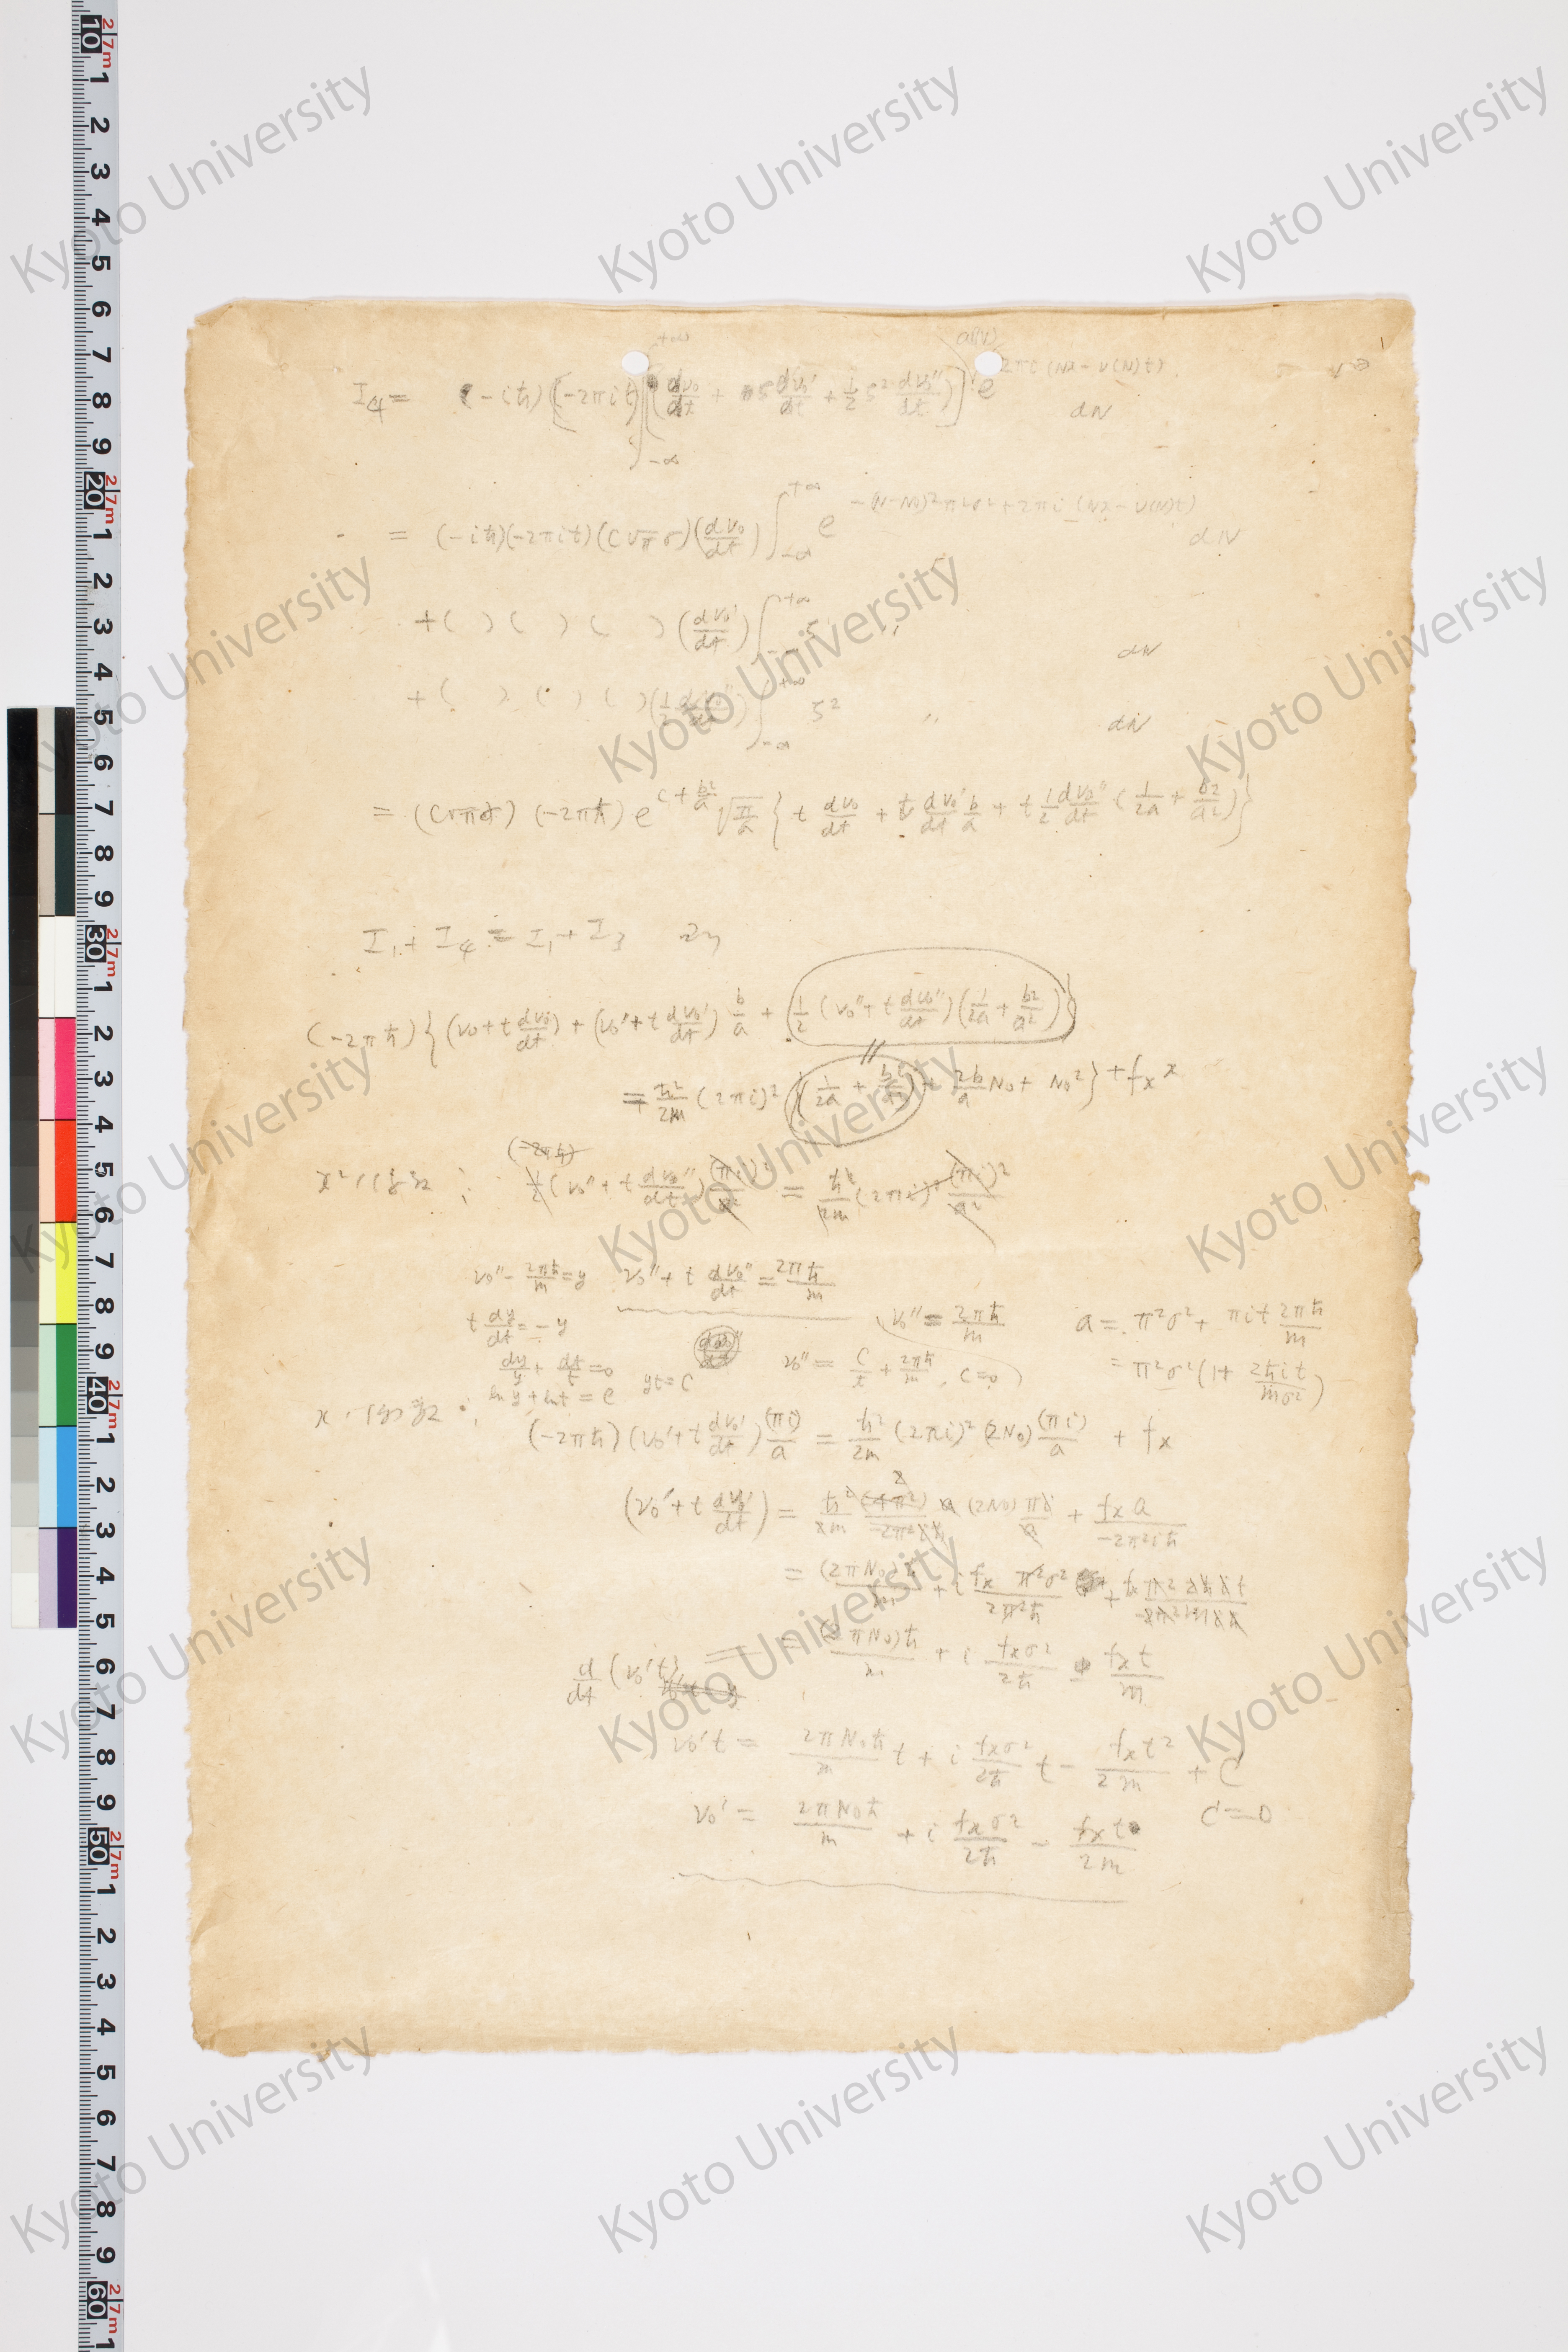 I₄ = (-iħ)(-2πit)∫_{-∞}^{+∞} [(dν₀/dt + ζ dν₀'/dt + ½ζ² dν₀''/dt)] a(N) e^{2πi(Nx - ν(N)t)} dN
= (-iħ)(-2πit)(C√π σ)(dν₀/dt) ∫_{-∞}^{+∞} e^{-(N-N₀)²π²σ² + 2πi(Nx - ν(N)t)} dN
+ ( ) ( ) ( ) (dν₀'/dt) ∫_{-∞}^{+∞} ζ 〃 dN
+ ( ) ( ) ( ) (½ dν₀''/dt) ∫_{-∞}^{+∞} ζ² 〃 dN
= (C√πσ) (-2πħ) e^{c + b²/a} √(π/a) { t dν₀/dt + t dν₀'/dt b/a + t ½ dν₀''/dt (1/2a + b²/a²) }
I₁ + I₄ = I₁ + I₃
(-2πħ) { (ν₀ + t dν₀/dt) + (ν₀' + t dν₀'/dt) b/a + ½ (ν₀'' + t dν₀''/dt)(1/2a + b²/a²) }
= ħ²/2m (2πi)² {(1/2a + b²/a²) + 2b/a N₀ + N₀²} + f_x x
(-2πħ)
½ (ν₀'' + t dν₀''/dt) (πi)²/a² = ħ²/2m (2πi)² (πi)²/a²
ν₀'' - 2πħ/m = y ν₀'' + t dν₀''/dt = 2πħ/m
t dy/dt = -y ν₀'' = 2πħ/m a = π²σ² + πit 2πħ/m
dy/y + dt/t = 0 yt = C ν₀'' = C/t + 2πħ/m, C=0 = π²σ²(1 + 2ħit/mσ²)
ln y + ln t = e
(-2πħ)(ν₀' + t dν₀'/dt) (πi)/a = ħ²/2m (2πi)² (2N₀) (πi)/a + f_x
(ν₀' + t dν₀'/dt) = (2N₀) + f_x a/-2π²iħ
= (2πN₀)ħ/m + i f_x π²σ²/2π²ħ
d/dt (ν₀'t) = (2πN₀)ħ/m + i f_xσ²/2ħ ± f_x t/m
ν₀'t = 2πN₀ħ/m t + i f_xσ²/2ħ t - f_x t²/2m + C
ν₀' = 2πN₀ħ/m + i f_xσ²/2ħ - f_x t/2m C=0